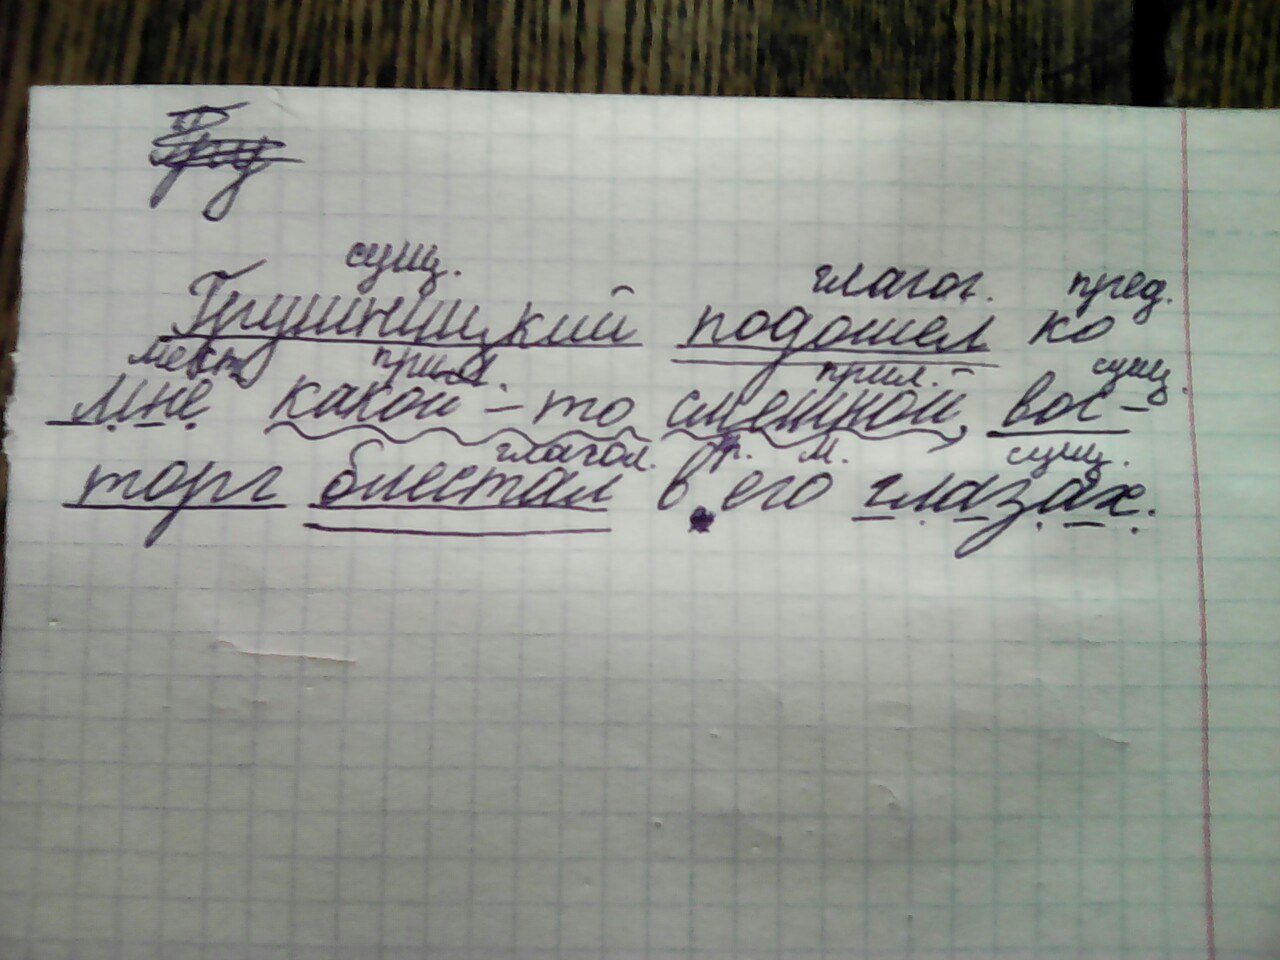 сущ. глагол. пред.
Грушницкий подошел ко
мест прил. прил. сущ.
мне какой-то смешной, вос-
глагол. п. м. сущ.
торг блестал в его глазах.